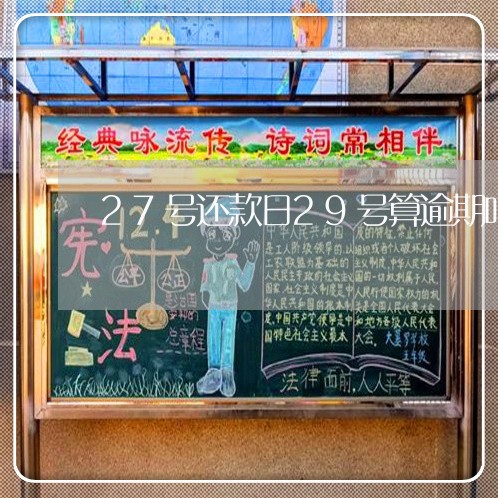 经典咏流传 诗词常相伴
27号还款日29号算逾期
12.
宪法
公平
公正
总章程
中华人民共和国
是工人阶级领导的,以
工农联盟为基础的
人民民主专政的社会主义
国家.社会主义制度是中
华人民共和国的根本制
度.中国共产党领导是中
国特色社会主义最本
质的特征.禁止任何
组织或者个人破坏社会
主义制度.中华人民共和
国的一切权利属于人民.
人民行使国家权力的机
关是全国人民代表大会
和地方各级人民代表
大会.
学校
五年级
法律面前,人人平等